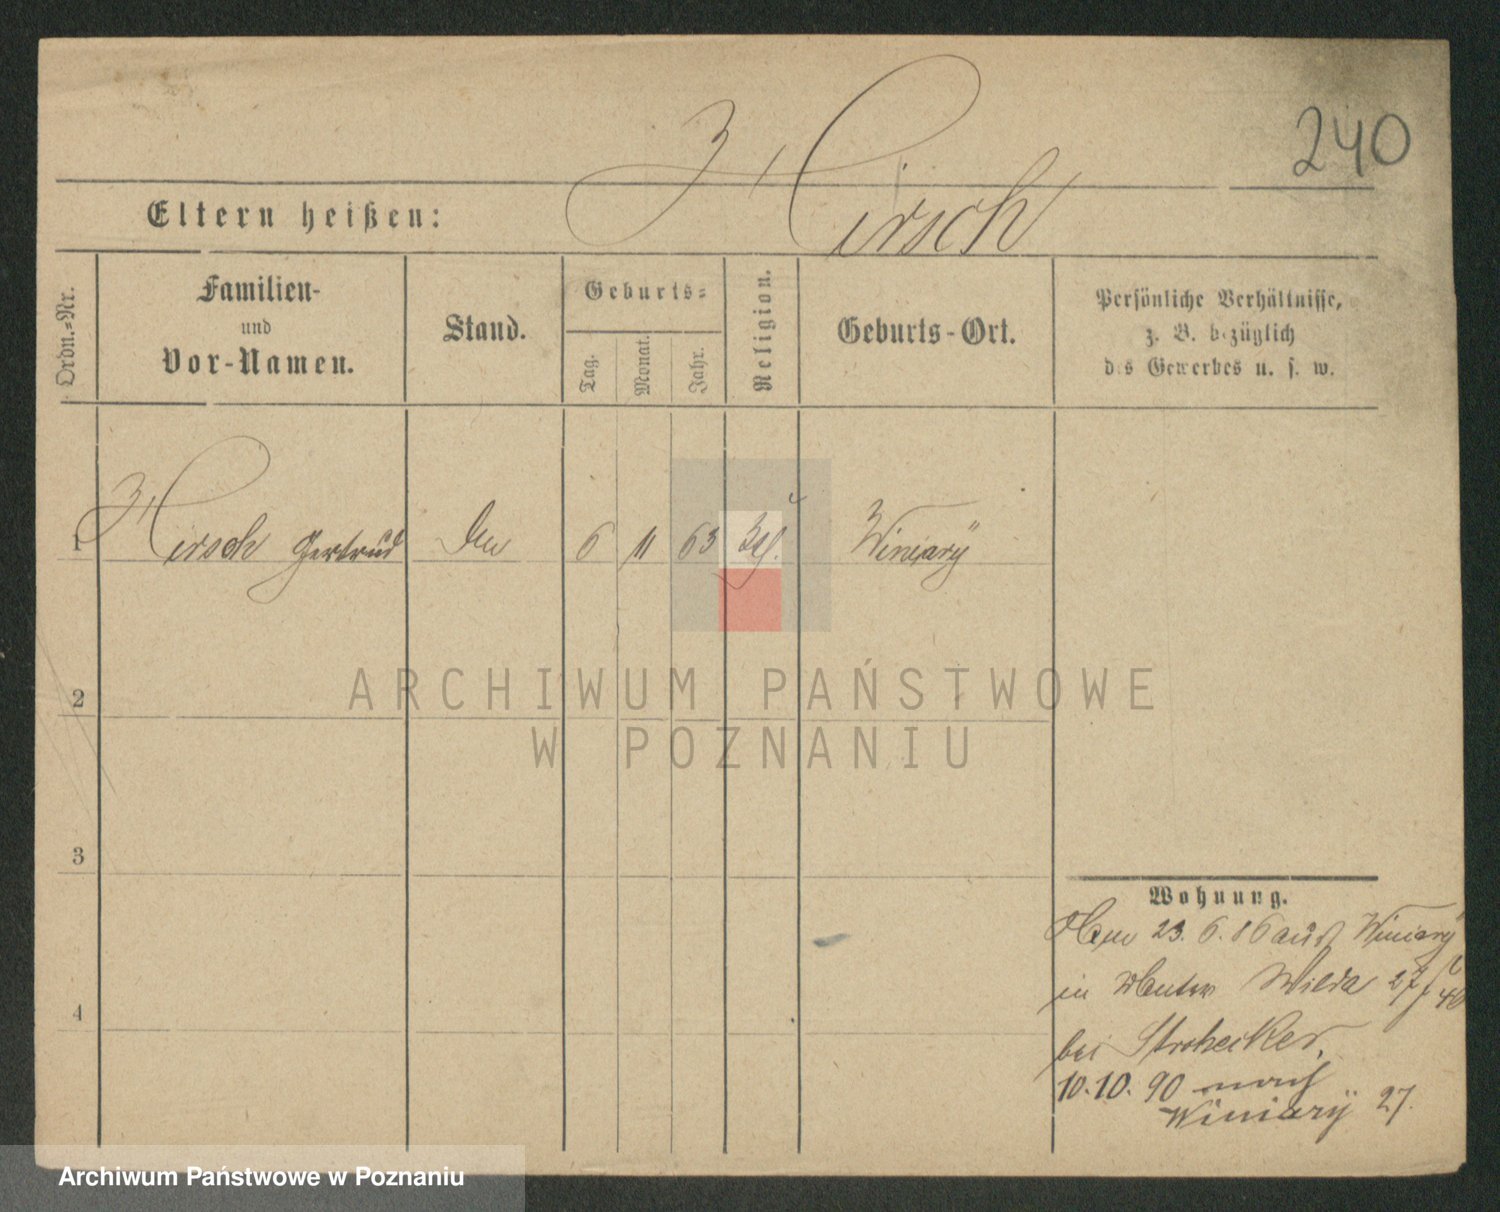 240
Hirsch
Eltern heißen:
Ordn.-Nr.
Familien-
und
Vor-Namen.
Stand.
Geburts-
Tag.
Monat.
Jahr.
Religion.
Geburts-Ort.
Persönliche Verhältnisse,
z. B. bezüglich
des Gewerbes u. s. w.
1 Hirsch Gertrud 6 11 63 Winiary
2
3
4
ARCHIWUM PAŃSTWOWE
W POZNANIU
Wohnung.
23. 6. 86 aus Winiary
in Unter Wilda 27
bei Strohecker,
10.10.90 nach
Winiary 27.
Archiwum Państwowe w Poznaniu